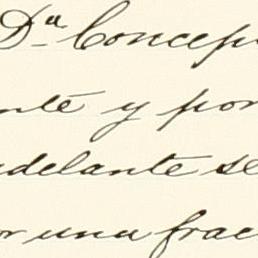 Dª Concep
nte y por
adelante se
or una frac